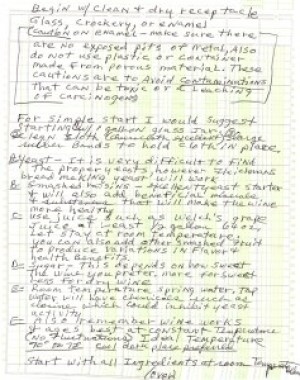 Begin w/ clean & dry receptacle
Glass, Crockery, or enamel
Caution on enamel - make sure there
are no exposed pits of metal, Also
do not use plastic or container
made from porous material. These
cautions are to Avoid Contaminations
that can be toxic or leaching
of carcinogens
For simple start I would suggest
starting w/ 1 gallon glass jar
Clean Large
rubber bands to hold cloth in place
A- Yeast - It is very difficult to find
the proper yeasts however
bread making yeast will work
B- Smashed raisins - yeast starter
& will also add
that will make the wine
more healthy
C- Use juice such as Welch's grape
Juice at least 1/2 gallon 64 oz.
Let stay at room temperature.
you can also add other smashed fruit
to produce variations in flavor &
health benefits.
D- Sugar - This depends on how sweet
the wine you prefer, more for sweet
less for dry wine
E- Room temperature spring water, Tap
water will have chemicals such as
chlorine which could inhibit yeast
activity
remember wine works
& ages best at constant temperature
(no fluctuations) Ideal Temperature
cool dark place preferred
Start with all ingredients at room
(over)